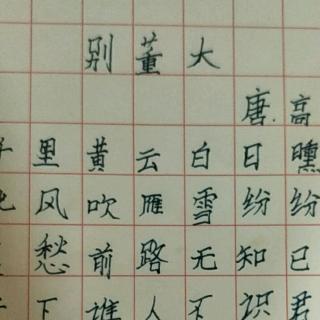 别董大
唐.高
里黄云白日曛
风吹雁雪纷纷
愁前路无知己
下谁人不识君